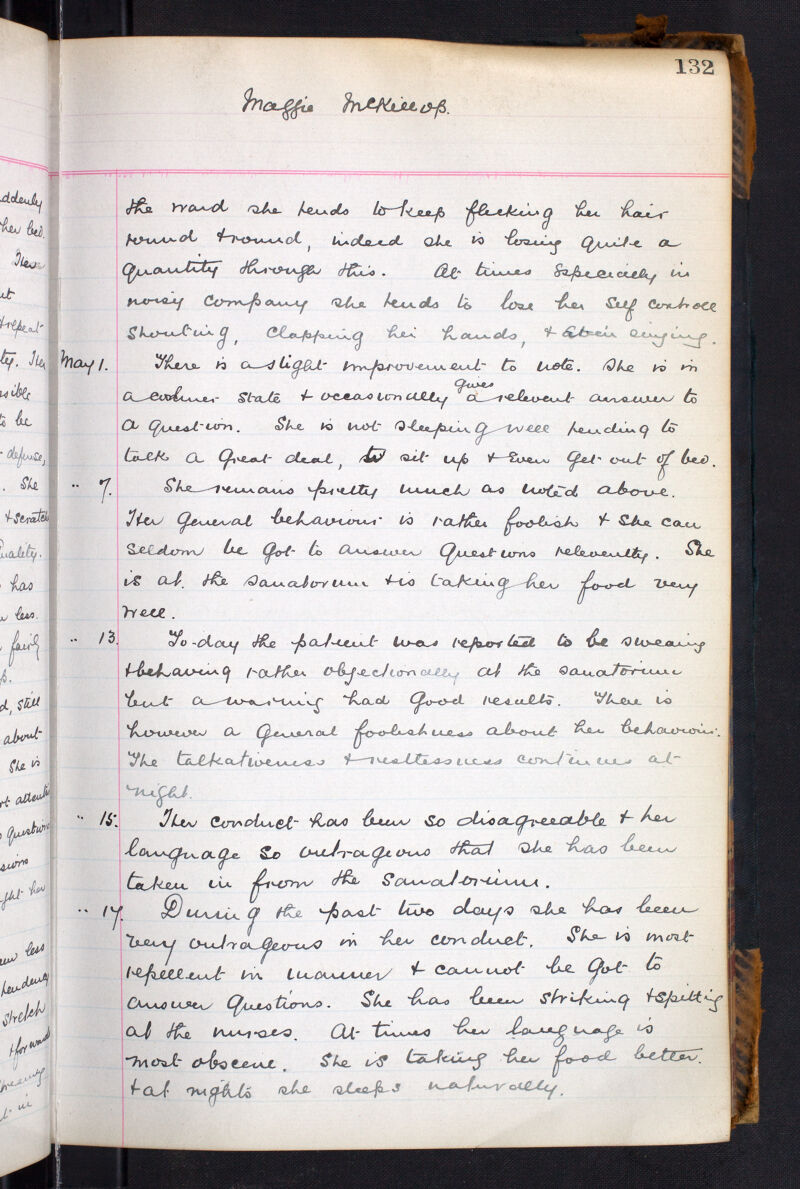 132
Maggie McKillop.
the ward she tends to keep flecking her hair
round & round, indeed she is losing quite a
quantity through this. At times especially in
noisy company she tends to lose her self controll
shouting, clapping her hands, & even singing.
May 1. There is a slight improvement to note. She is in
a calmer state & occasionally gives a relevent answer to
a question. She is not sleeping well tending to
talk a great deal, to sit up & even get out of bed.
" 7. She remains pretty much as noted above.
Her general behaviour is rather foolish & she can
seldom be got to answer questions relevently. She
is at the sanatorium & is taking her food very
well.
" 13. To-day the patient was reported to be swearing
& behaving rather objectionally at the sanatorium
but a warning had good results. There is
however a general foolishness about her behaviour.
The talkativeness & restlessness continues at
night.
" 15. Her conduct has been so disagreeable & her
language so outrageous that she has been
taken in from the sanatorium.
" 17. During the past two days she has been
very outrageous in her conduct. She is most
repellent in manner & cannot be got to
answer questions. She has been striking & spitting
at the nurses. At times her language is
most obscene. She is taking her food better.
& at nights she sleeps naturally.